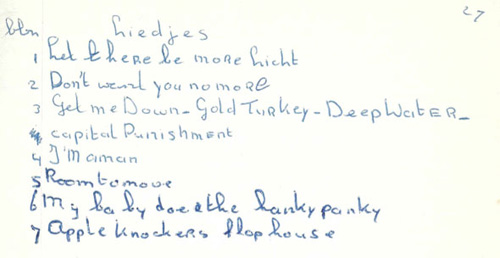 27
bbn hiedjes
1 Let there be more hicht
2 Don't want you no more
3 Get me Down - Gold Turkey - Deep Water -
capital Punishment
4 I'm a man
5 Room to move
6 My ba by doe the hanky panky
7 Apple Knockers flop house